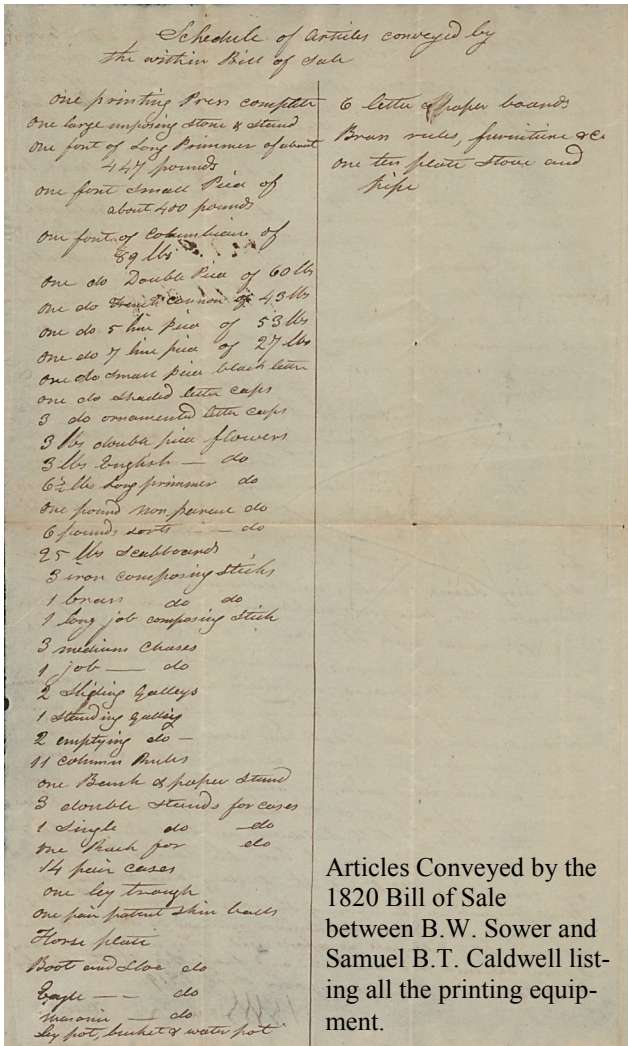 Schedule of Articles conveyed by
the within Bill of Sale
one printing Press complete
One large imposing Stone & Stand
One font of Long Primmer of about
447 pounds
one font Small Pica of
about 400 pounds
One font of Columbiaire of
89 lbs
One do Double Pica of 60 lbs
One do French cannon of 43 lbs
One do 5 line pica of 53 lbs
One do 7 line pica of 27 lbs
One do Small pica black letter
one do Shaded letter caps
3 do ornamented letter caps
3 lbs double pica flowers
3 lbs English — do
6½ lbs Long primmer do
One pound non pareil do
6 pounds sorts — do
25 lbs Scabboards
3 iron composing Sticks
1 brass do do
1 long job composing Stick
3 medium Chases
1 job — do
2 Sliding galleys
1 Standing galley
2 emptying do —
11 Column Rules
one Bank & paper Stand
3 double Stands for cases
1 Single do do
One Rack for do
14 pair cases
one ley trough
one pair patent Skin balls
Horse plate
Boot and Shoe do
Eagle — — do
Masonic — do
Ley pot, bucket & water pot
6 letter & paper boards
Brass rules, furniture &c
one ten plate Stove and
pipe
Articles Conveyed by the
1820 Bill of Sale
between B.W. Sower and
Samuel B.T. Caldwell list-
ing all the printing equip-
ment.